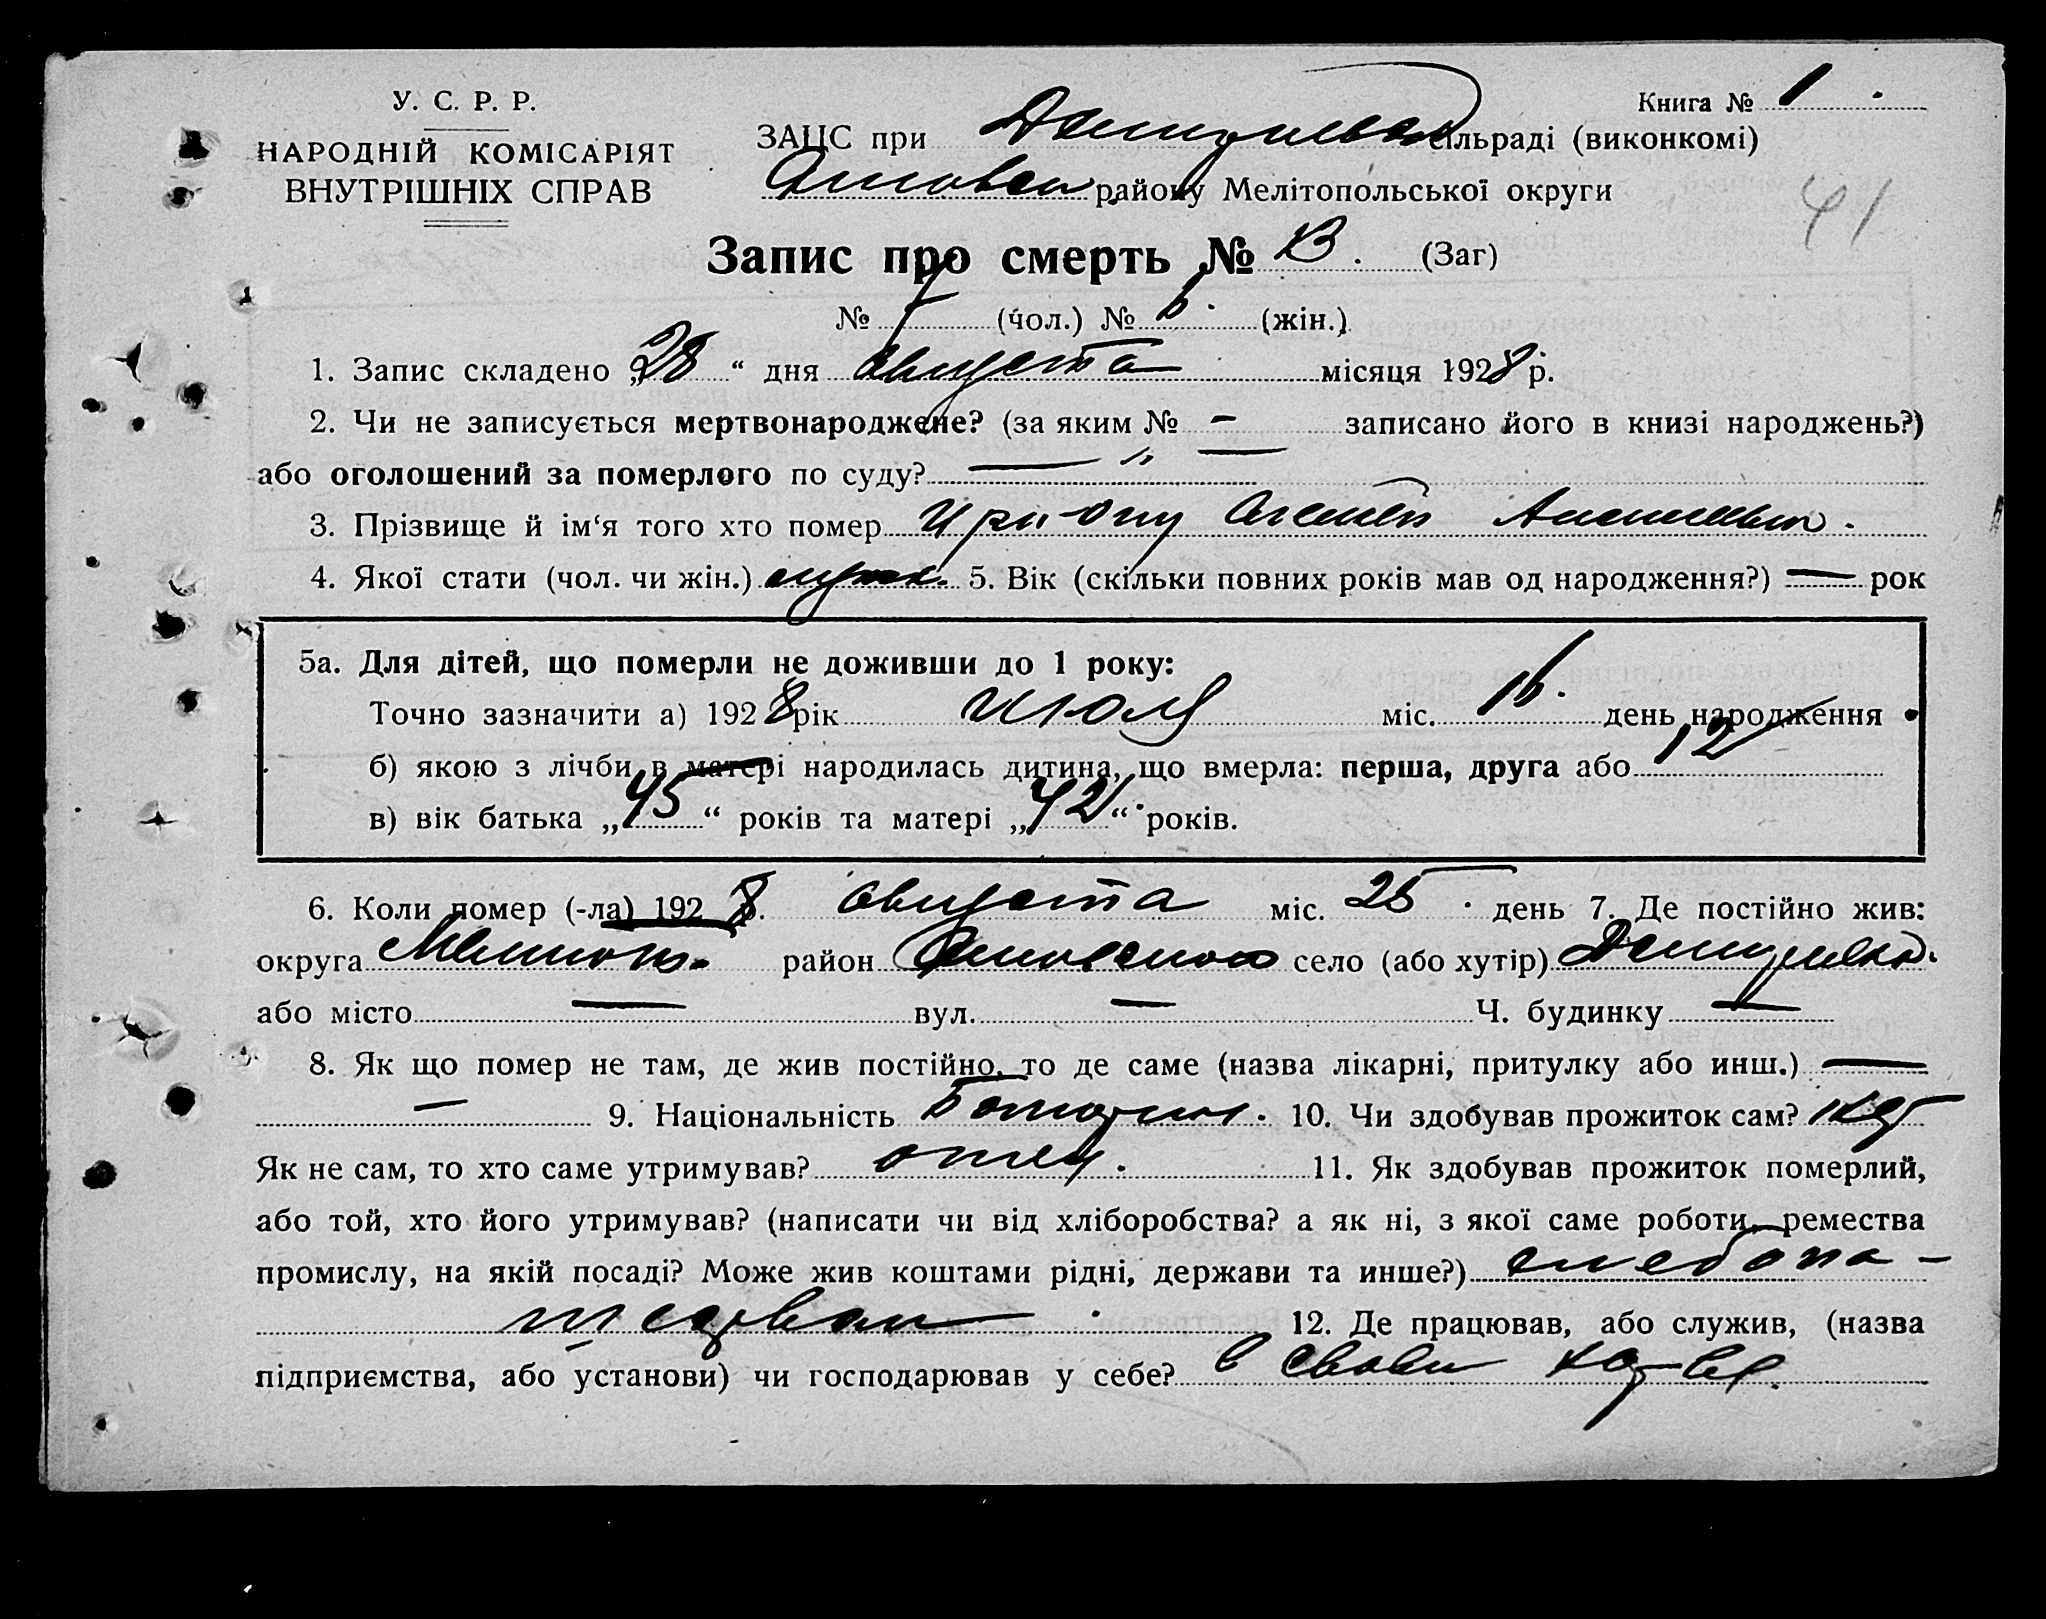 У. С. Р. Р.
НАРОДНІЙ КОМІСАРІЯТ
ВНУТРІШНІХ СПРАВ
Книга № 1
ЗАЦС при сільраді (виконкомі)
району Мелітопольської округи
41
Запис про смерть № 13. (Заг)
№ 7 (чол.) № 6. (жін.)
1. Запис складено „28“ дня августа місяця 1928 р.
2. Чи не записується мертвонароджене? (за яким № — записано його в книзі народжень?)
або оголошений за померлого по суду? — „ —
3. Прізвище й ім‘я того хто помер
4. Якої стати (чол. чи жін.) муж. 5. Вік (скільки повних років мав од народження?) — рок
5а. Для дітей, що померли не доживши до 1 року:
Точно зазначити а) 1928 рік июля міс. 16. день народження
б) якою з лічби в матері народилась дитина, що вмерла: перша, друга або 12
в) вік батька „45“ років та матері „42“ років.
6. Коли помер (-ла) 1928 р. августа міс. 25 день 7. Де постійно жив:
округа Мелитоп. район село (або хутір)
або місто — вул. — Ч. будинку —
8. Як що помер не там, де жив постійно, то де саме (назва лікарні, притулку або инш.) —
— 9. Національність 10. Чи здобував прожиток сам?
Як не сам, то хто саме утримував? отец. 11. Як здобував прожиток померлий,
або той, хто його утримував? (написати чи від хліборобства? а як ні, з якої саме роботи, ремества
промислу, на якій посаді? Може жив коштами рідні, держави та инше?) хлебопа-
шеством 12. Де працював, або служив, (назва
підприємства, або установи) чи господарював у себе? в своем хоз-ве.